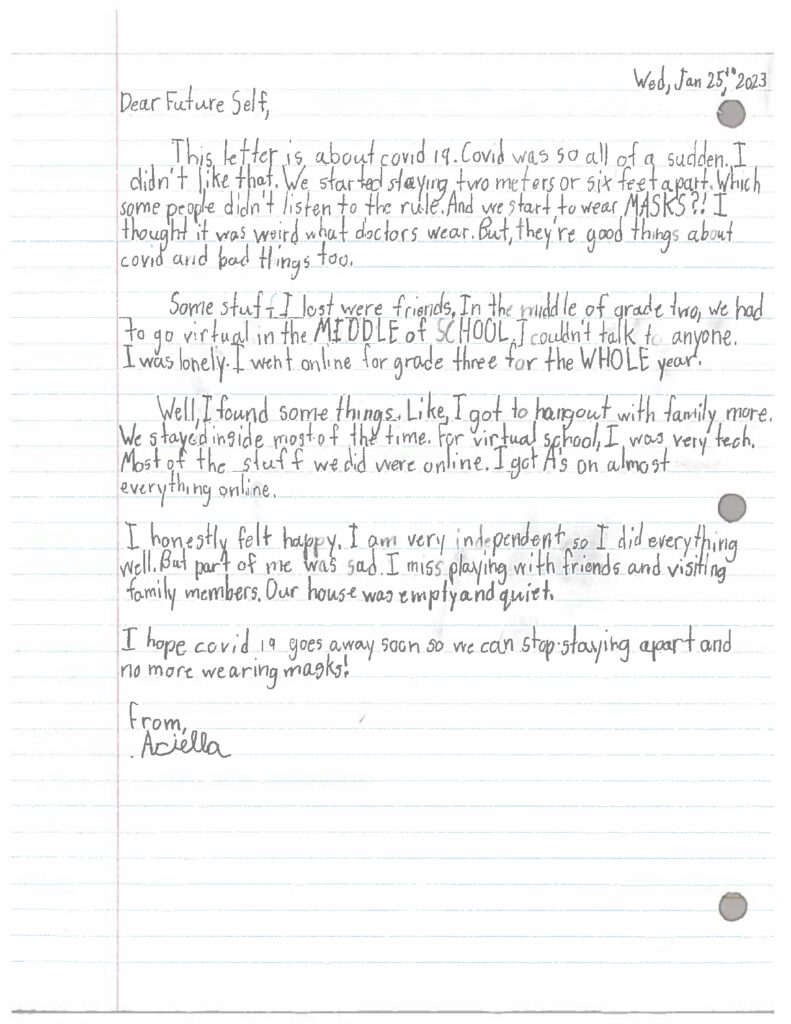 Wed, Jan 25,th 2023
Dear Future Self,
This letter is about covid 19. Covid was so all of a sudden. I
didn't like that. We started staying two meters or six feet apart. Which
some people didn't listen to the rule. And we start to wear MASKS?! I
thought it was weird what doctors wear. But, they're good things about
covid and bad things too.
Some stuff I lost were friends. In the middle of grade two, we had
to go virtual in the MIDDLE of SCHOOL. I couldn't talk to anyone.
I was lonely. I went online for grade three for the WHOLE year.
Well, I found some things. Like, I got to hangout with family more.
We stayed inside most of the time. For virtual school, I was very tech.
Most of the stuff we did were online. I got A's on almost
everything online.
I honestly felt happy. I am very independent so I did everything
well. But part of me was sad. I miss playing with friends and visiting
family members. Our house was empty and quiet.
I hope covid 19 goes away soon so we can stop staying apart and
no more wearing masks!
From,
Aciella